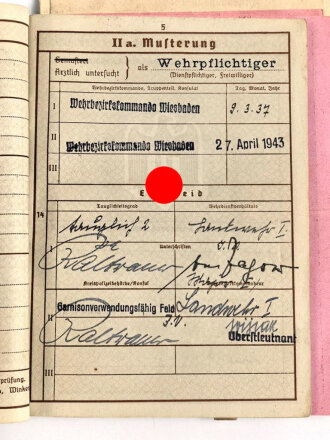 5
II a. Musterung
Gemustert
Ärztlich untersucht } als Wehrpflichtiger
(Dienstpflichtiger, Freiwilliger)
Wehrbezirkskommando, Truppenteil, Konsulat Tag, Monat, Jahr
I Wehrbezirkskommando Wiesbaden 9.3.37
II Wehrbezirkskommando Wiesbaden 27. April 1943
III
Tauglichkeitsgrad Wehrdienstverhältnis
14
I tauglich 2 Landwehr I
Unterschriften
Kreispolizeibehörde/Konsul
II Garnisonverwendungsfähig Feld Landwehr I
J.V.
Oberstleutnant
III